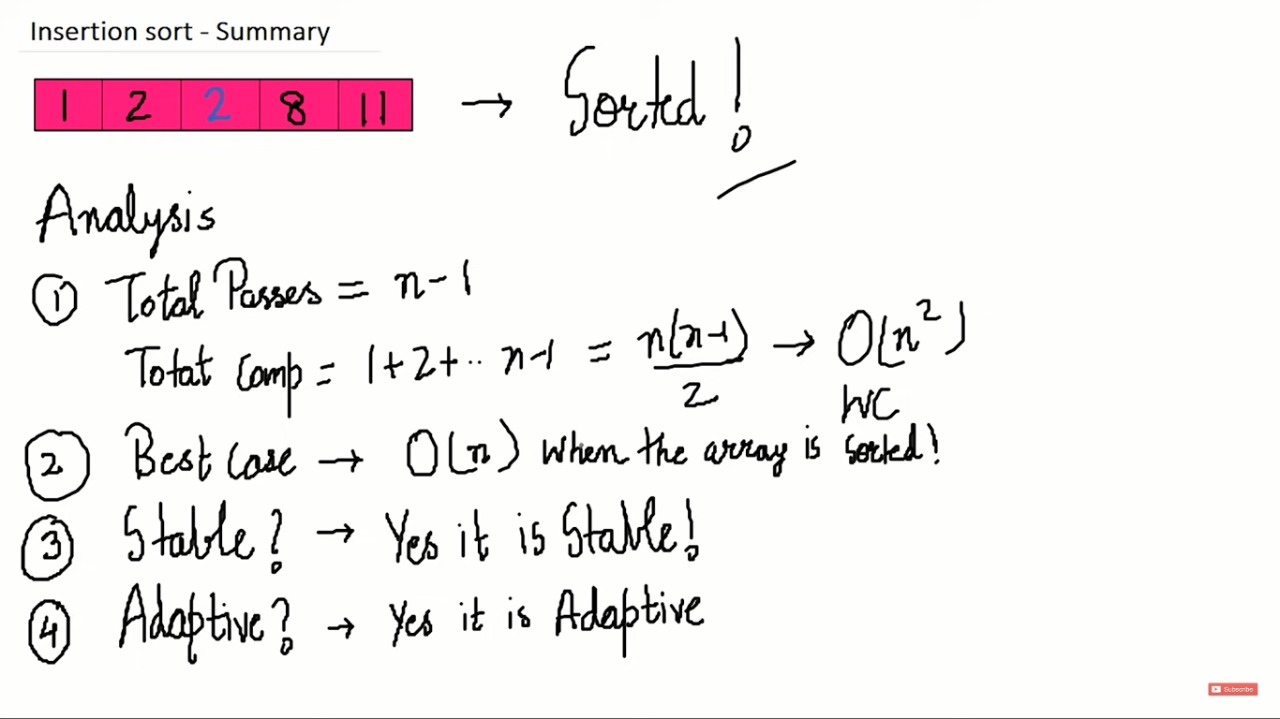 Insertion sort - Summary
1 2 2 8 11 → Sorted!
Analysis
① Total Passes = n-1
Total Comp = 1+2+.. n-1 = n(n-1)/2 → O(n²)
WC
② Best Case → O(n) when the array is sorted!
③ Stable? → Yes it is Stable!
④ Adaptive? → Yes it is Adaptive
Subscribe